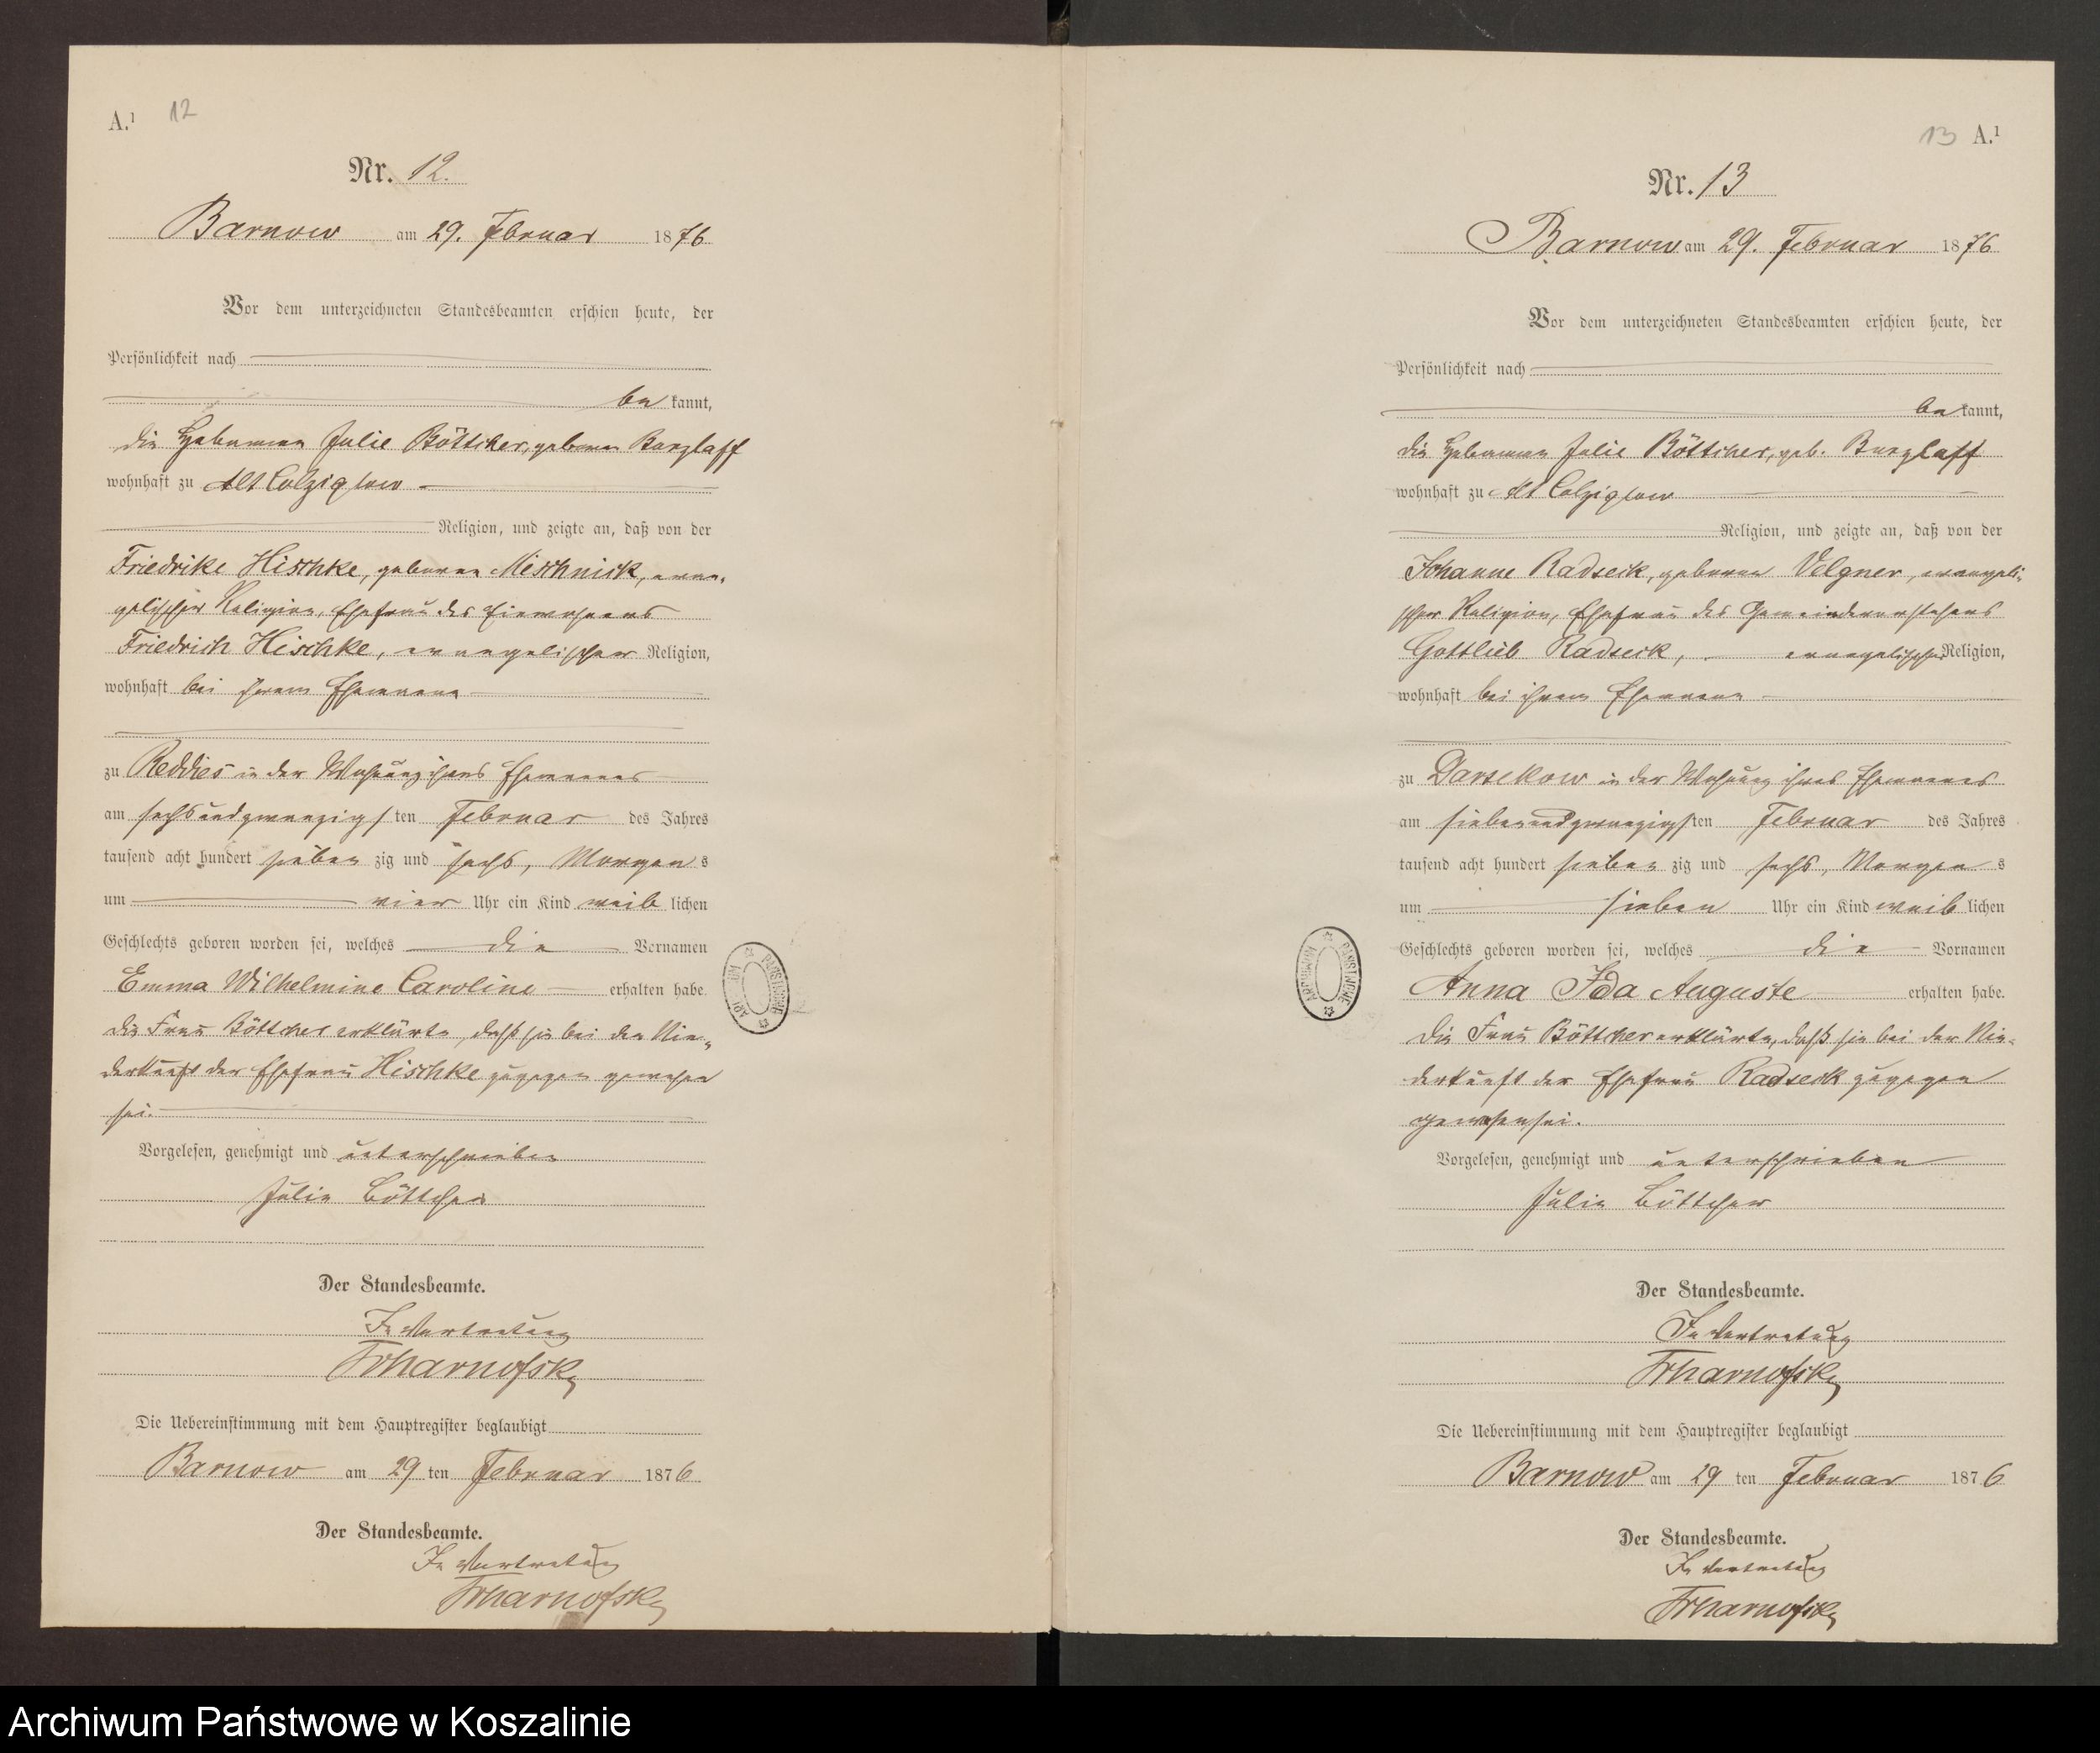 A.¹ 12
Nr. 12.
Barnow am 29. Februar 1876
Vor dem unterzeichneten Standesbeamten erschien heute, der
Persönlichkeit nach
be kannt,
die Hebamme Julie Böttcher, geborene Barzlaff
wohnhaft zu Alt Colziglow
Religion, und zeigte an, daß von der
Friedrike Hischke, geborene Mischnick, evan-
gelischer Religion, Ehefrau des Einwohners
Friedrich Hischke, evangelischer Religion,
wohnhaft bei ihrem Ehemanne
zu Reddies in der Wohnung ihres Ehemannes
am sechsundzwanzigs ten Februar des Jahres
tausend acht hundert sieben zig und sechs, Morgen s
um vier Uhr ein Kind weib lichen
Geschlechts geboren worden sei, welches die Vornamen
Emma Wilhelmine Caroline erhalten habe.
Die Frau Böttcher erklärte, daß sie bei der Nie-
derkunft der Ehefrau Hischke zugegen gewesen
sei.
Vorgelesen, genehmigt und unterschrieben
Julie Böttcher
Der Standesbeamte.
In Vertretung
Die Uebereinstimmung mit dem Hauptregister beglaubigt
Barnow am 29 ten Februar 1876
Der Standesbeamte.
In Vertretung
ARCHIWUM PAŃSTWOWE
13 A.¹
Nr. 13
Barnow am 29. Februar 1876
Vor dem unterzeichneten Standesbeamten erschien heute, der
Persönlichkeit nach
be kannt,
die Hebamme Julie Böttcher, geb. Barzlaff
wohnhaft zu Alt Colziglow
Religion, und zeigte an, daß von der
Johanne Radseck, geborene Velgner, evangeli-
scher Religion, Ehefrau des Gemeindevorstehers
Gottlieb Radseck, evangelischer Religion,
wohnhaft bei ihrem Ehemanne
zu Darsekow in der Wohnung ihres Ehemannes
am siebenundzwanzigs ten Februar des Jahres
tausend acht hundert sieben zig und sechs, Morgen s
um sieben Uhr ein Kind weib lichen
Geschlechts geboren worden sei, welches die Vornamen
Anna Ida Auguste erhalten habe.
Die Frau Böttcher erklärte, daß sie bei der Nie-
derkunft der Ehefrau Radseck zugegen
gewesen sei.
Vorgelesen, genehmigt und unterschrieben
Julie Böttcher
Der Standesbeamte.
In Vertretung
Die Uebereinstimmung mit dem Hauptregister beglaubigt
Barnow am 29 ten Februar 1876
Der Standesbeamte.
In Vertretung
ARCHIWUM PAŃSTWOWE
Archiwum Państwowe w Koszalinie